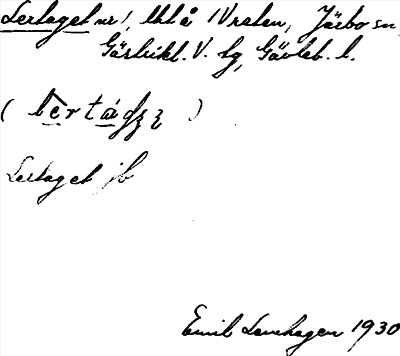 Lertaget nr 1, Uhlå 1 Vralen, Järbo sn,
Gästrikl. V. tg, Gävleb. l.
( lertágәt )
Lertaget jb
Emil Levehagen 1930